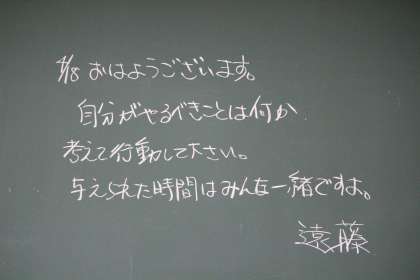 4/8 おはようございます。
自分がやるべきことは何か
考えて行動して下さい。
与えられた時間はみんな一緒ですよ。
遠藤